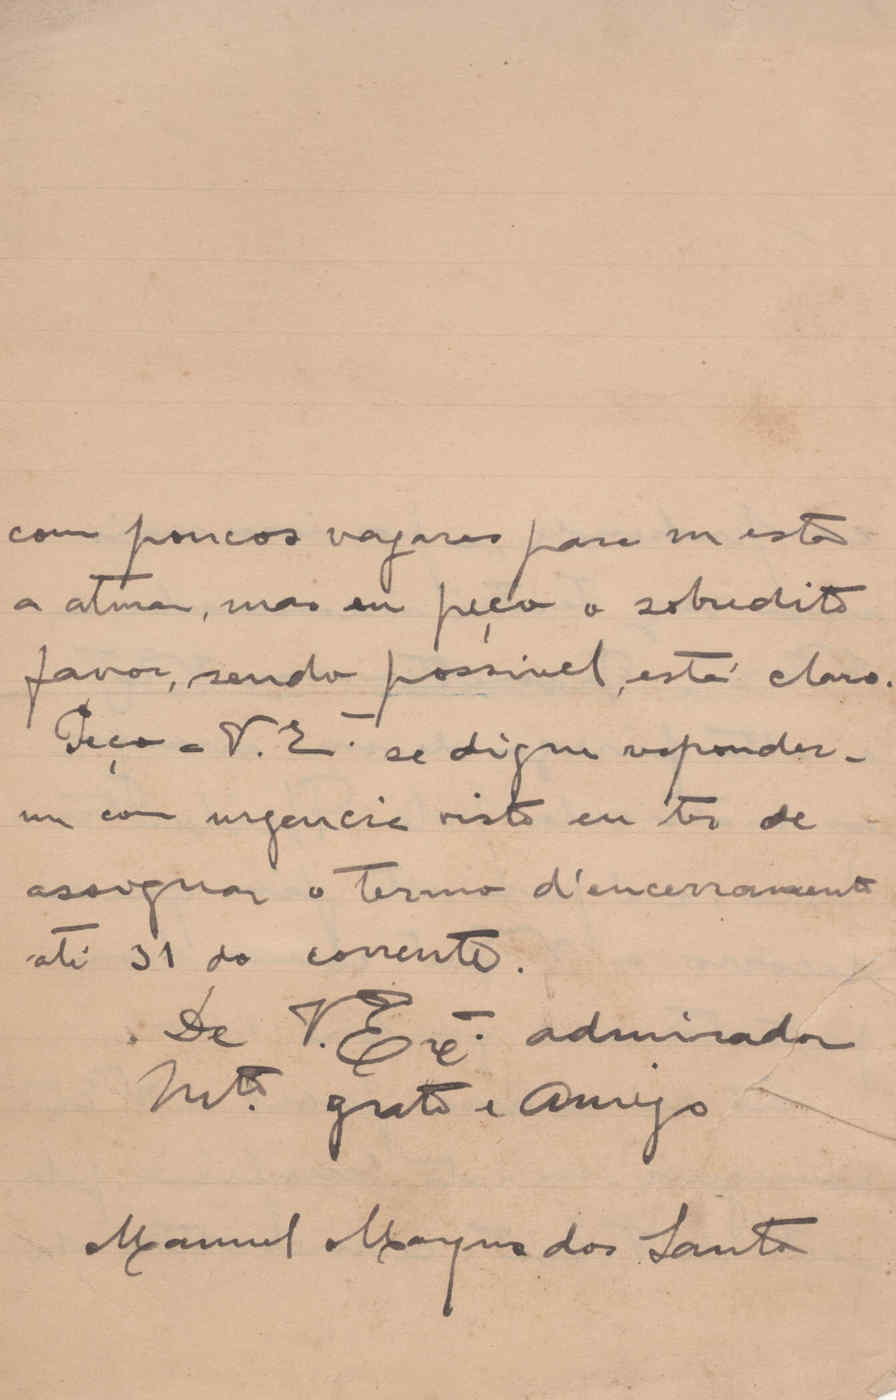 com poucos vagares para m'estar
a aturar, mas eu peço o sobredito
favor, sendo possivel, está claro.
Peço a V. Ex.ª se digne responder-
me com urgencia visto eu ter de
assignar o termo d'encerramento
até 31 do corrente.
De V. Ex.ª admirador
Mt.º grato e Amigo
Manuel dos Santos